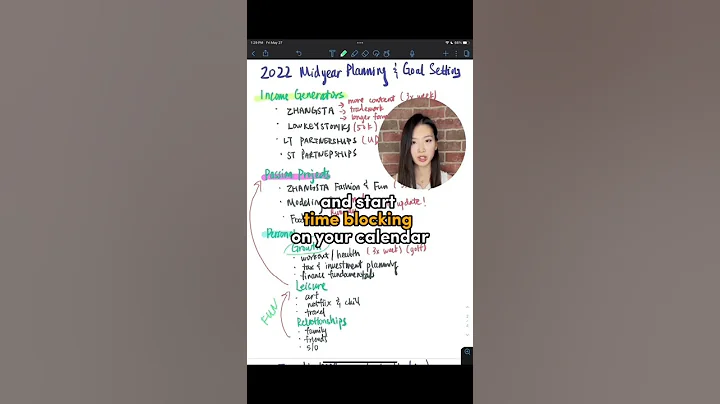 1:29 PM Fri May 27
2022 Midyear Planning & Goal Setting
Income Generators
· ZHANGSTA → more content (3x week)
→ trademark
→ longer form
· LOWKEYSTONKS (50k)
· LT PARTNERSHIPS
· ST PARTNERSHIPS
Passion Projects
· ZHANGSTA Fashion & Fun
· Modeling update!
and start
time blocking
on your calendar
Personal
Growth
· workout/health (3x week) (golf)
· tax & investment planning
· finance fundamentals
Leisure
· art
· netflix & chill
· travel
FUN
Relationships
· family
· friends
· s/o